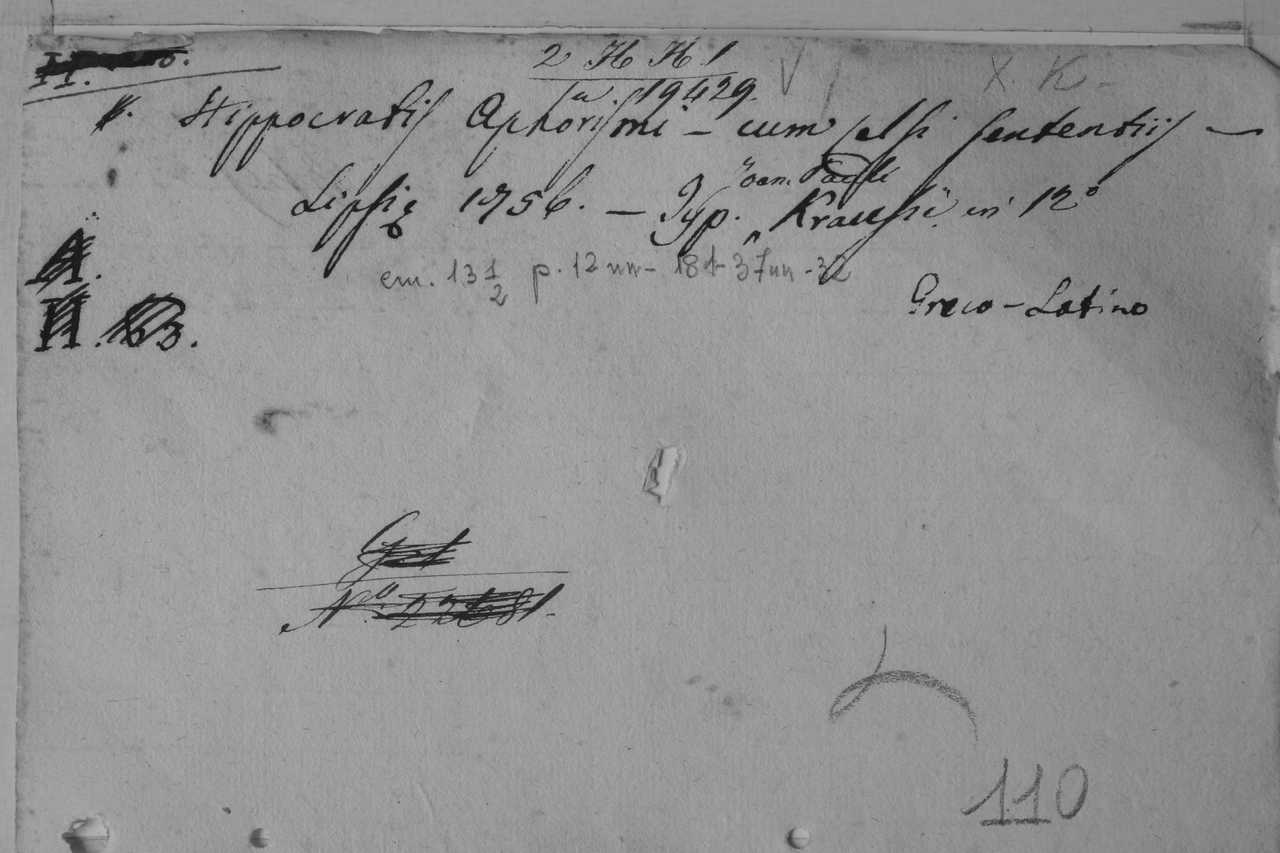 II.
2 H H 1
X. K.
19429.
Hippocratis Aphorismi - cum Celsi sententiis -
Lipsiȩ 1756. - Typ. Joan. Pauli Kraussi. in 12°
cm. 13 1/2 p. 12 nn - 181 - 37 nn - 32
Greco-Latino
A.
II.
Nº 22681.
110